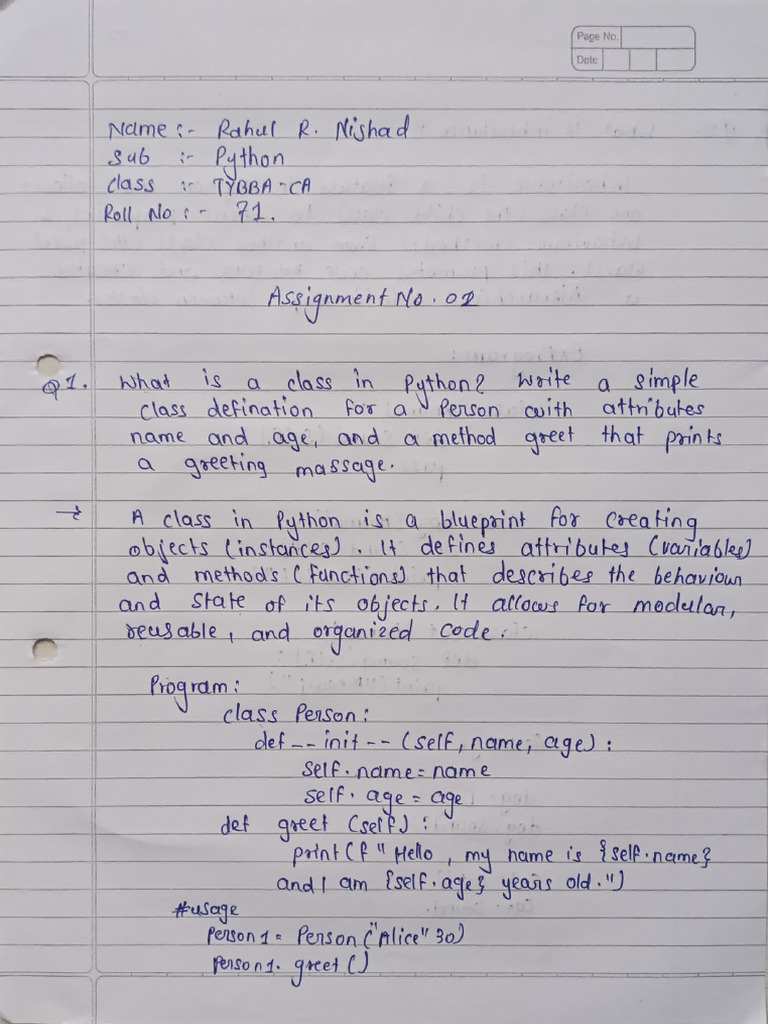 Page No.
Date
Name :- Rahul R. Nishad
Sub :- Python
Class :- TYBBA-CA
Roll No :- 71.
Assignment No. 02
Q1. What is a class in Python? Write a simple
class defination for a Person with attributes
name and age, and a method greet that prints
a greeting massage.
→ A class in Python is a blueprint for creating
objects (instances). It defines attributes (variables)
and methods (functions) that describes the behaviour
and state of its objects. It allows for modular,
reusable, and organized code.
Program:
class Person:
def -- init -- (self, name, age):
self.name = name
self. age = age
def greet (self):
print(f "Hello, my name is {self.name}
and I am {self.age} years old.")
#usage
Person1 = Person ("Alice" 30)
Person1. greet ()